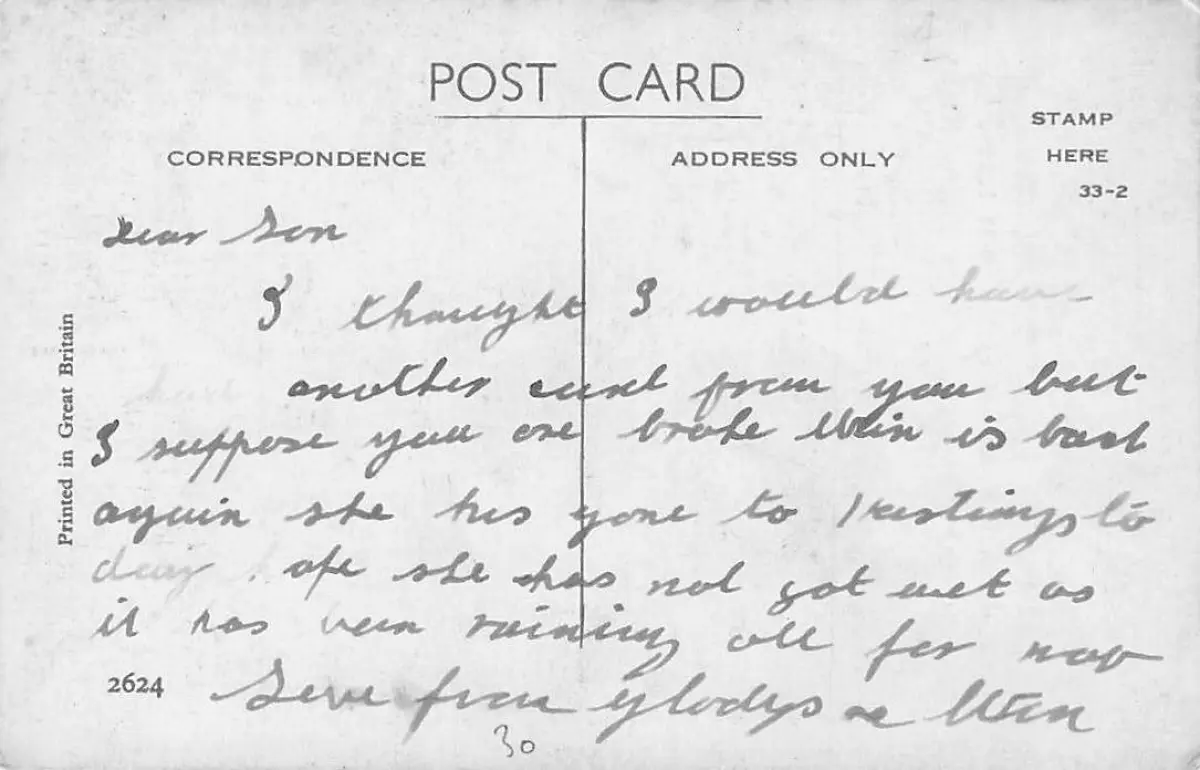 POST CARD
CORRESPONDENCE
ADDRESS ONLY
STAMP
HERE
33-2
Printed in Great Britain
Dear Son
I thought I would have
had another card from you but
I suppose you are broke Win is bad
again she has gone to Hastings to
day hope she has not got wet as
it has been raining all for
2624
Love from Gladys & Win
30